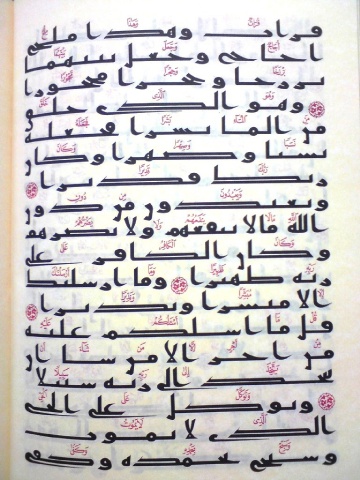 فرات وهذا ملح
اجاج وجعل بينهما
برزخا وحجرا محجورا
وهو الذي خلق
من الما بشرا فجعله
نسبا وصهرا وكان
ربك قديرا
ويعبدون من دون
الله ما لا ينفعهم ولا يضرهم
وكان الكافر على
ربه ظهيرا وما ارسلنك
الا مبشرا ونذيرا
قل ما اسلكم عليه
من اجر الا من شا ان
يتخذ الى ربه سبيلا
وتوكل على الحي
الذي لا يموت
وسبح بحمده وكفى